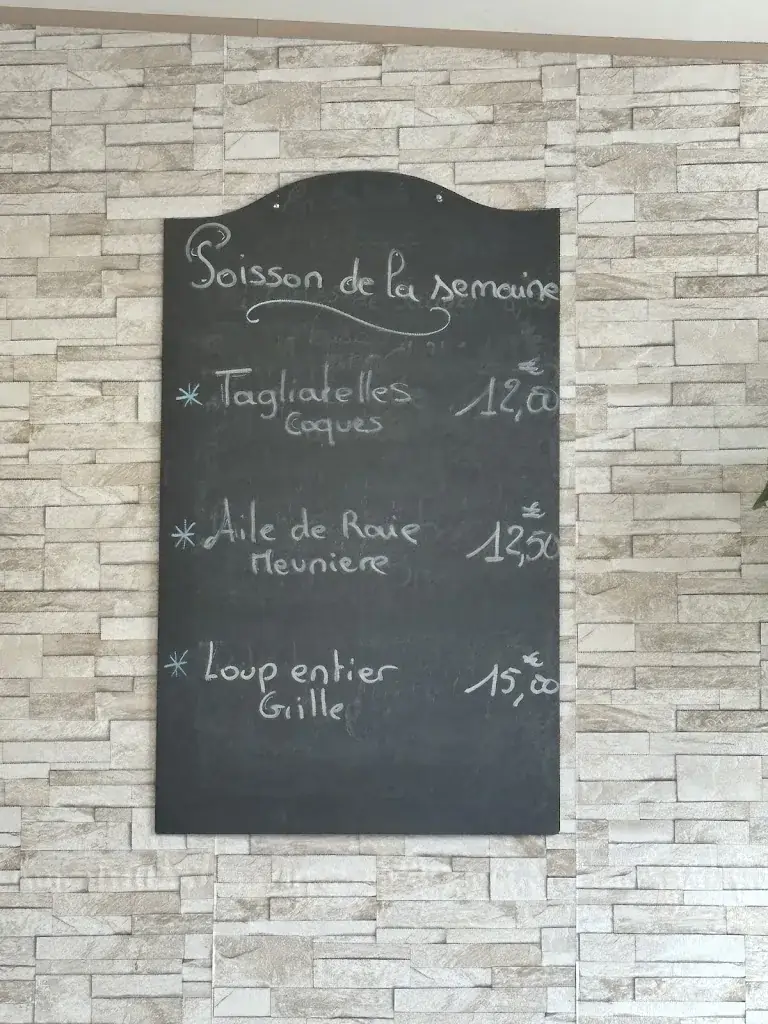 Poisson de la semaine
* Tagliatelles 12,00€
Coques
* Aile de Raie 12,50€
Meuniere
* Loup entier 15,00€
Grille